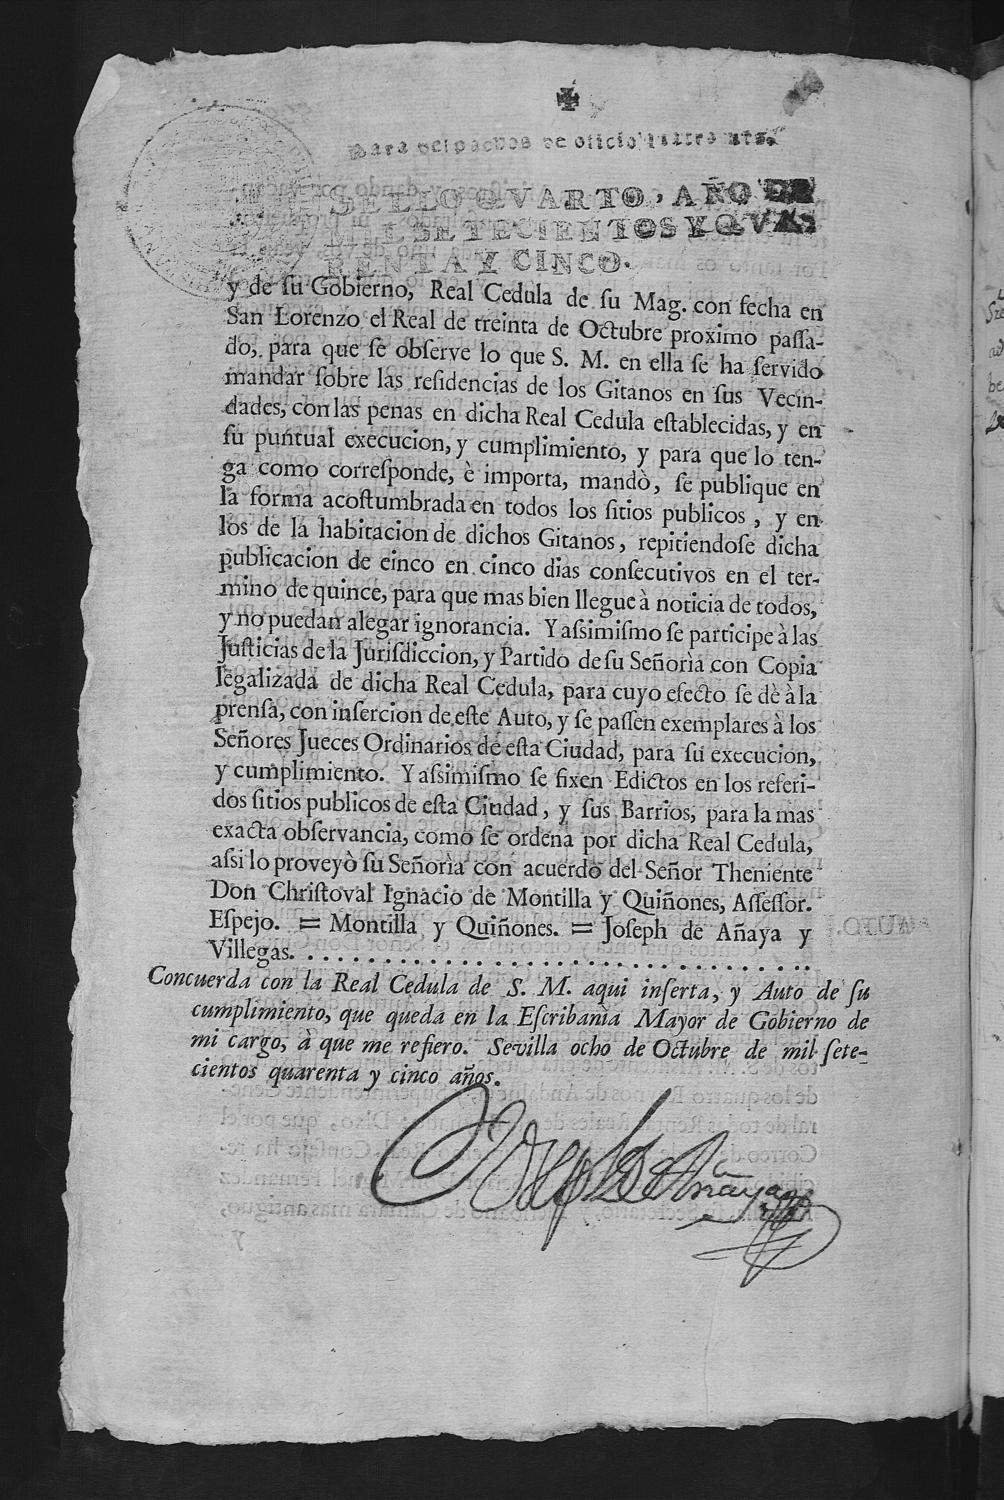 ✠
Para despachos de oficio quatro mrs.
SELLO QVARTO, AÑO DE
MIL SETECIENTOS Y QVA-
RENTA Y CINCO.
y de ſu Gobierno, Real Cedula de ſu Mag. con fecha en
San Lorenzo el Real de treinta de Octubre proximo paſſa-
do, para que ſe obſerve lo que S. M. en ella ſe ha ſervido
mandar ſobre las reſidencias de los Gitanos en ſus Vecin-
dades, con las penas en dicha Real Cedula eſtablecidas, y en
ſu puntual execucion, y cumplimiento, y para que lo ten-
ga como correſponde, è importa, mandò, ſe publique en
la forma acoſtumbrada en todos los ſitios publicos, y en
los de la habitacion de dichos Gitanos, repitiendoſe dicha
publicacion de cinco en cinco dias conſecutivos en el ter-
mino de quince, para que mas bien llegue à noticia de todos,
y no puedan alegar ignorancia. Y aſſimiſmo ſe participe à las
Juſticias de la Juriſdiccion, y Partido de ſu Señorìa con Copia
legalizada de dicha Real Cedula, para cuyo efecto ſe dè à la
prenſa, con inſercion de eſte Auto, y ſe paſſen exemplares à los
Señores Jueces Ordinarios de eſta Ciudad, para ſu execucion,
y cumplimiento. Y aſſimiſmo ſe fixen Edictos en los referi-
dos ſitios publicos de eſta Ciudad, y ſus Barrios, para la mas
exacta obſervancia, como ſe ordena por dicha Real Cedula,
aſsi lo proveyò ſu Señorìa con acuerdo del Señor Theniente
Don Chriſtoval Ignacio de Montilla y Quiñones, Aſſeſſor.
Eſpejo. = Montilla y Quiñones. = Joſeph de Añaya y
Villegas. . . . . . . . . . . . . . . . . . . . . . . . . . . . . . .
Concuerda con la Real Cedula de S. M. aqui inſerta, y Auto de ſu
cumplimiento, que queda en la Eſcribanìa Mayor de Gobierno de
mi cargo, à que me refiero. Sevilla ocho de Octubre de mil ſete-
cientos quarenta y cinco años.